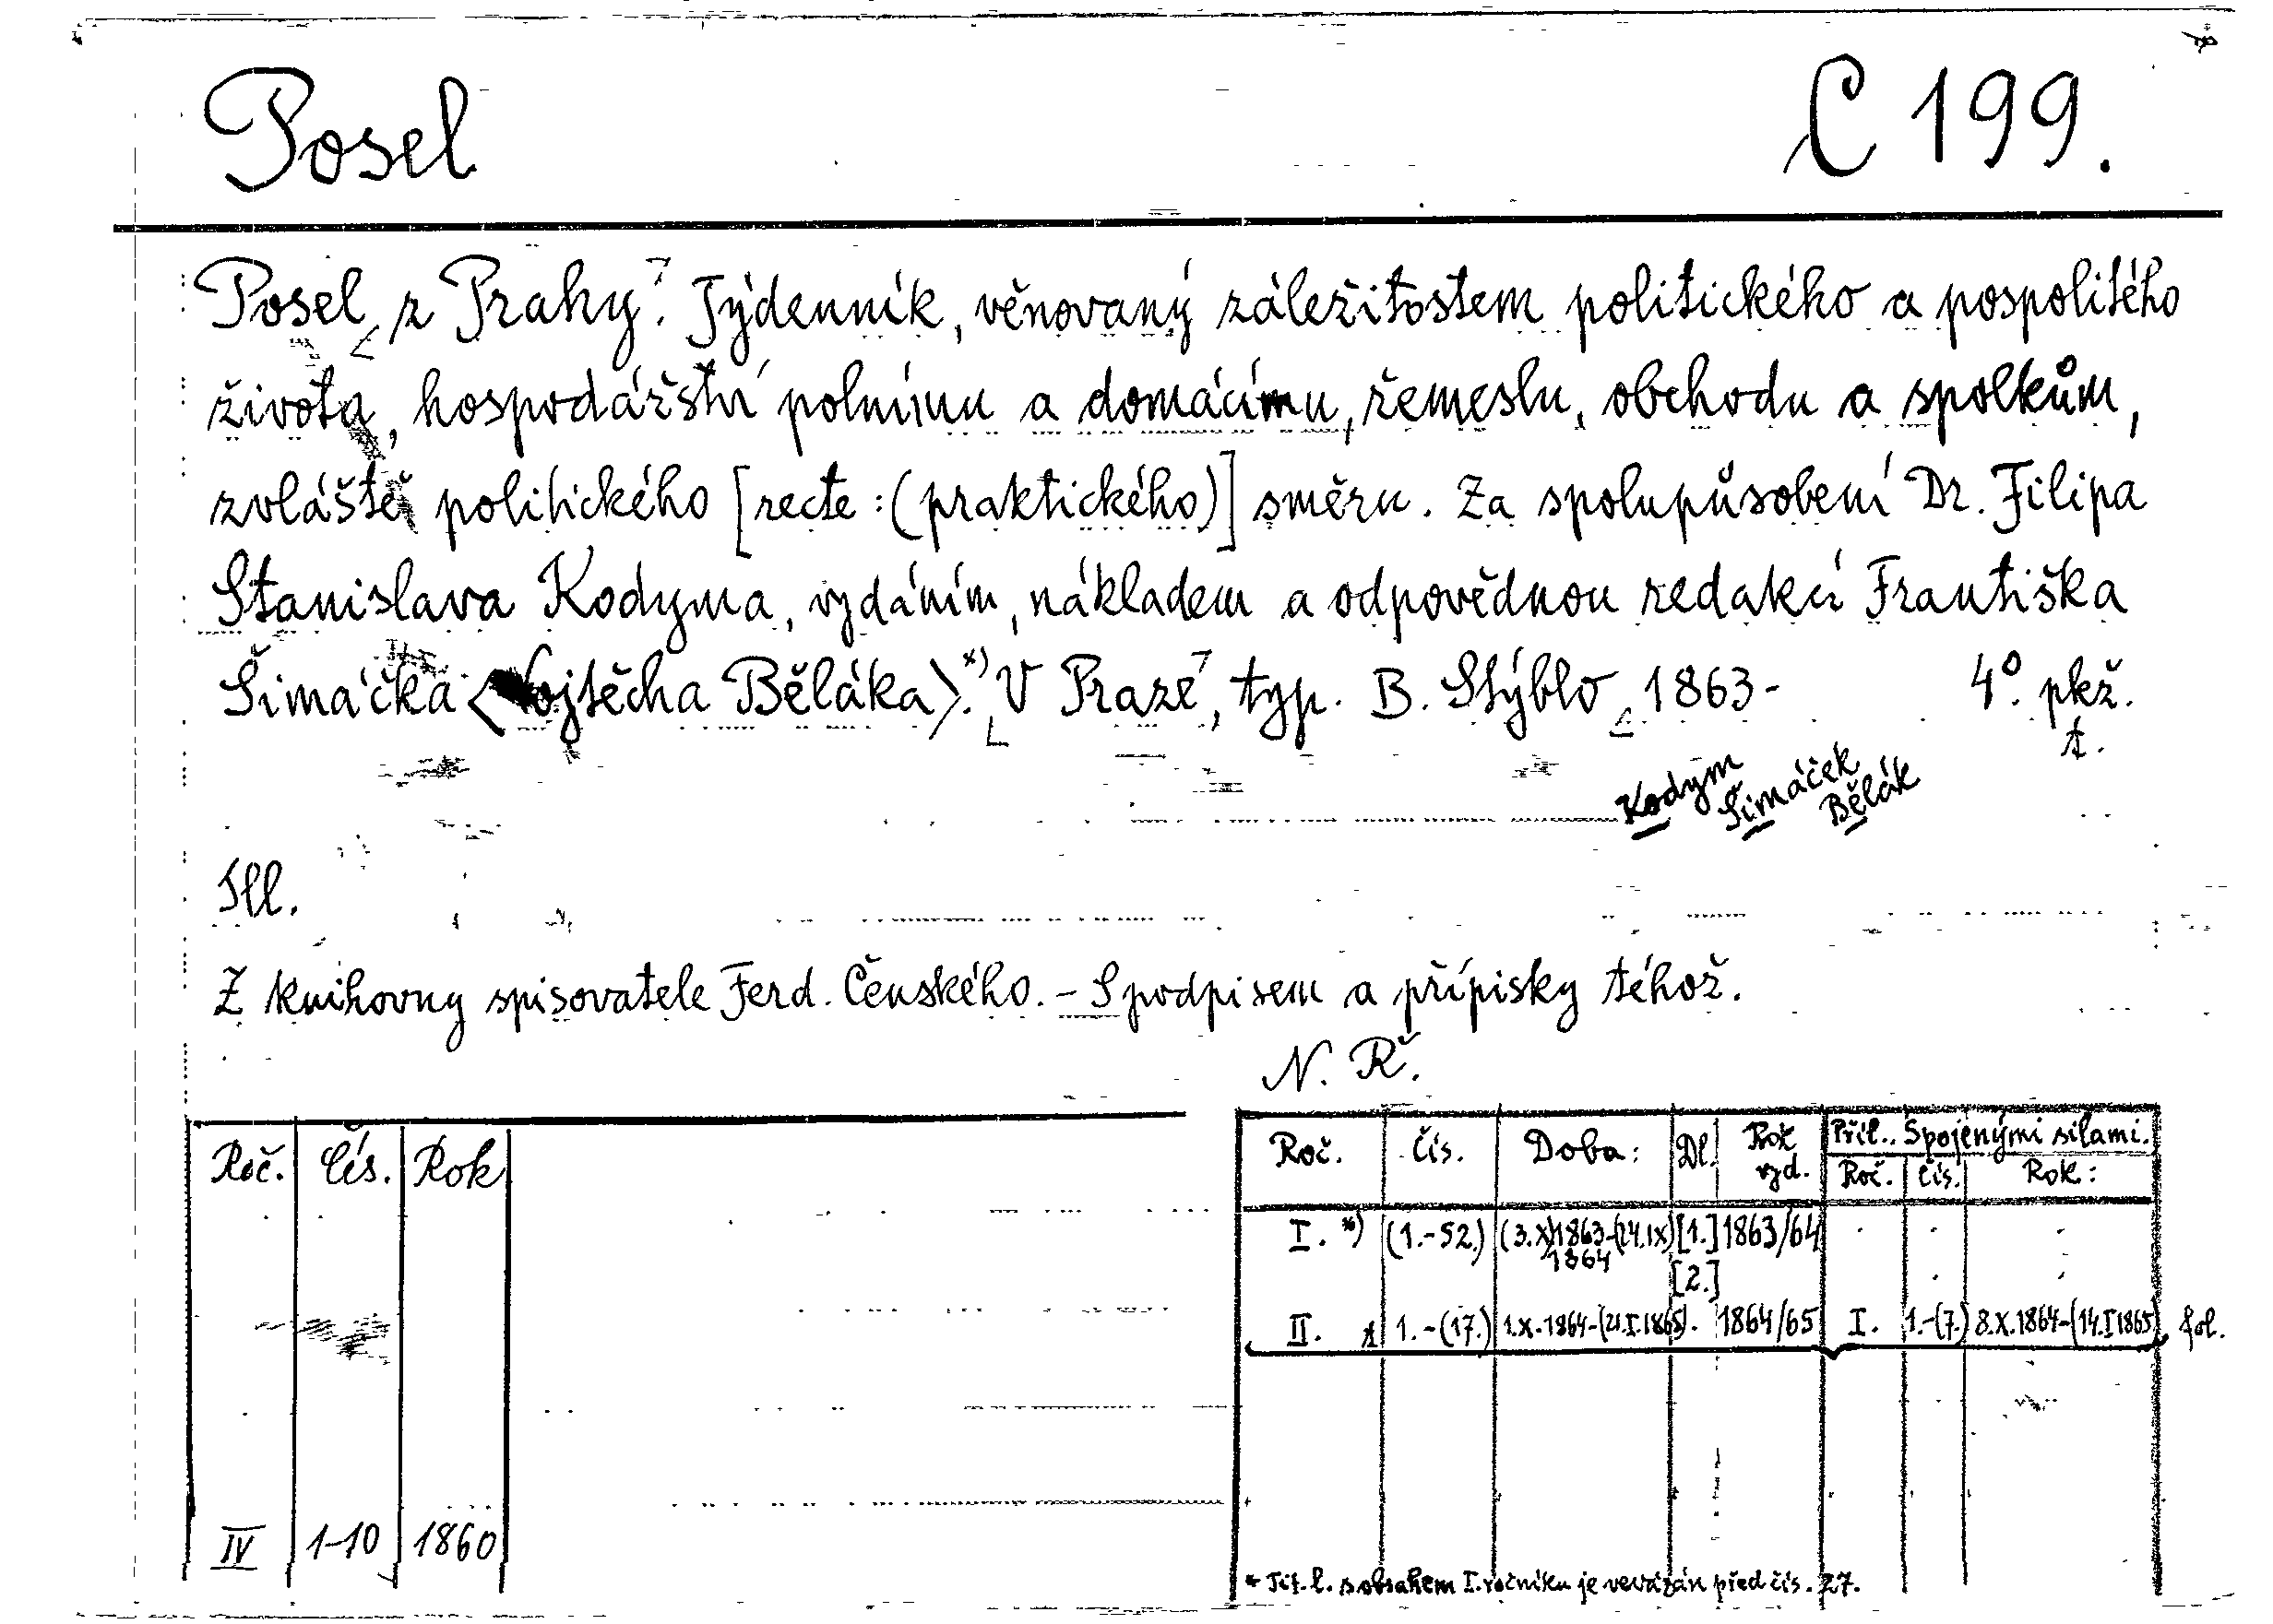 Posel C 199.
Posel z Prahy. Týdenník, věnovaný záležitostem politického a pospolitého
života, hospodářství polnímu a domácímu, řemeslu, obchodu a spolkům,
zvláště politického [recte: (praktického)] směru. Za spolupůsobení Dr. Filipa
Stanislava Kodyma, vydáním, nákladem a odpovědnou redakcí Františka
Šimáčka <Vojtěcha Běláka>.*) V Praze, typ. B. Stýblo 1863- 4°. pkž.
t.
Kodym
Šimáček
Bělák
Ill.
Z knihovny spisovatele Ferd. Čenského. - S podpisem a přípisky téhož.
N. Ř.
Roč. Čís. Rok
IV 1-10 1860
Roč. Čís. Doba: Dl. Rok vyd. Příl. Spojenými silami.
Roč. Čís. Rok:
I. *) (1.-52.) (3.X)1863-(24.IX) [1.] 1863/64 . . .
1864
[2.] . .
II. * 1.-(17.) 1.X.1864-(21.I.1865). 1864/65 I. 1.-(7.) 8.X.1864-(14.I 1865), fol.
* Tit. l. s obsahem I. ročníku je vevázán před čís. 27.